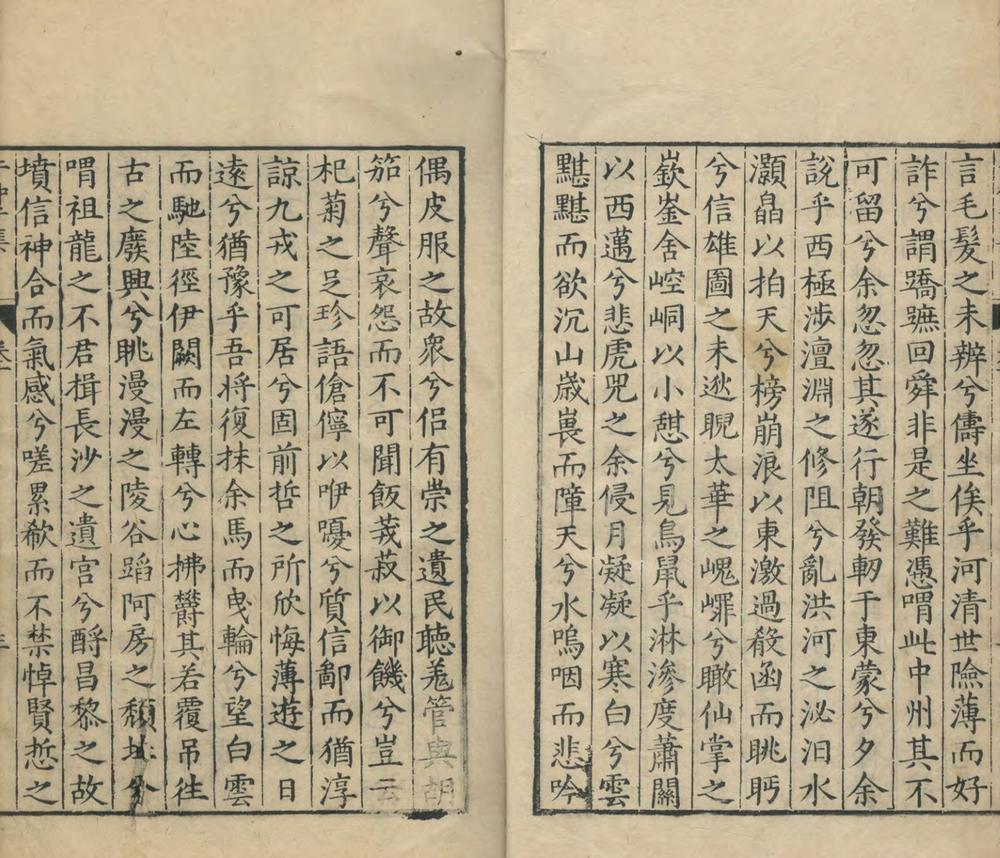 言毛髮之未辨兮儔坐俟乎河清世險薄而好
詐兮謂蹻蹠回舜非是之難憑喟此中州其不
可留兮余忽忽其遂行朝發軔于東蒙兮夕余
說乎西極涉澶淵之修阻兮亂洪河之泌汩水
灝皛以拍天兮榜崩浪以東激過殽函而眺眄
兮信雄圖之未逖睨太華之嵬㠑兮瞰仙掌之
嶔崟舍崆峒以小憇兮見鳥鼠乎淋滲度蕭關
以西邁兮悲虎兕之余侵月凝凝以寒白兮雲
黮黮而欲沉山嵗㠕而障天兮水嗚咽而悲吟
偶皮服之故衆兮侣有祟之遺民聽羌管與胡
笳兮聲哀怨而不可聞飯莪菽以御饑兮豈云
杞菊之足珍語傖儜以咿嚘兮質信鄙而猶淳
諒九戎之可居兮固前哲之所欣悔薄遊之日
遠兮猶豫乎吾將復抹余馬而曳輪兮望白雲
而馳陸徑伊闕而左轉兮心拂欝其若覆吊徃
古之廢興兮眺漫漫之陵谷蹈阿房之頽址兮
喟祖龍之不君揖長沙之遺宫兮酹昌黎之故
墳信神合而氣感兮嗟累欷而不禁悼賢悊之